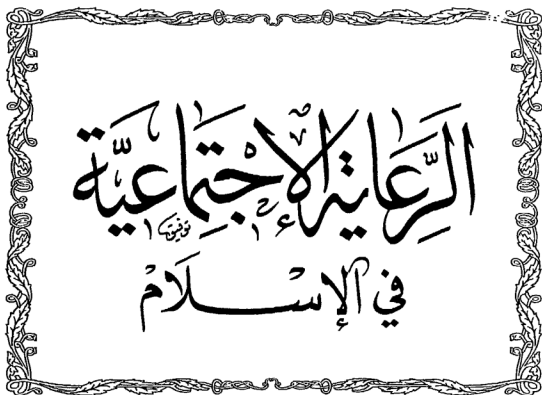 الرِّعَاية الإِجْتِمَاعيَّة
توفيق
في الإِسْلَامْ